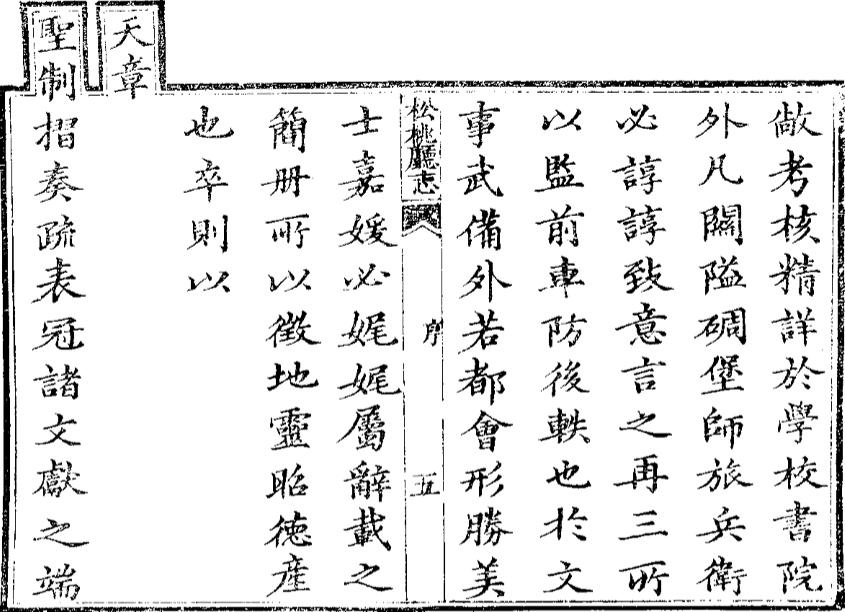 敞考核精詳於學校書院
外凡關隘碉堡師旅兵衛
必諄諄致意言之再三所
以監前車防後軼也於文
事武備外若都會形勝美
松桃廳志
序
五
士嘉媛必娓娓屬辭載之
簡册所以徵地靈昭德產
也卒則以
天章
聖制摺奏疏表冠諸文獻之端